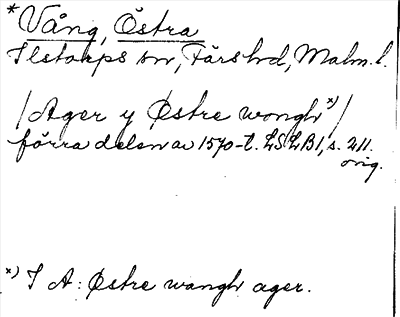 * Vång, Östra
Ilstorps sn, Färs hd, Malm. l.
/Ager y Østre wongh *)/
förra delen av 1570-t. LSLB1, s. 211.
orig.
*) I A: Østre wangh ager.